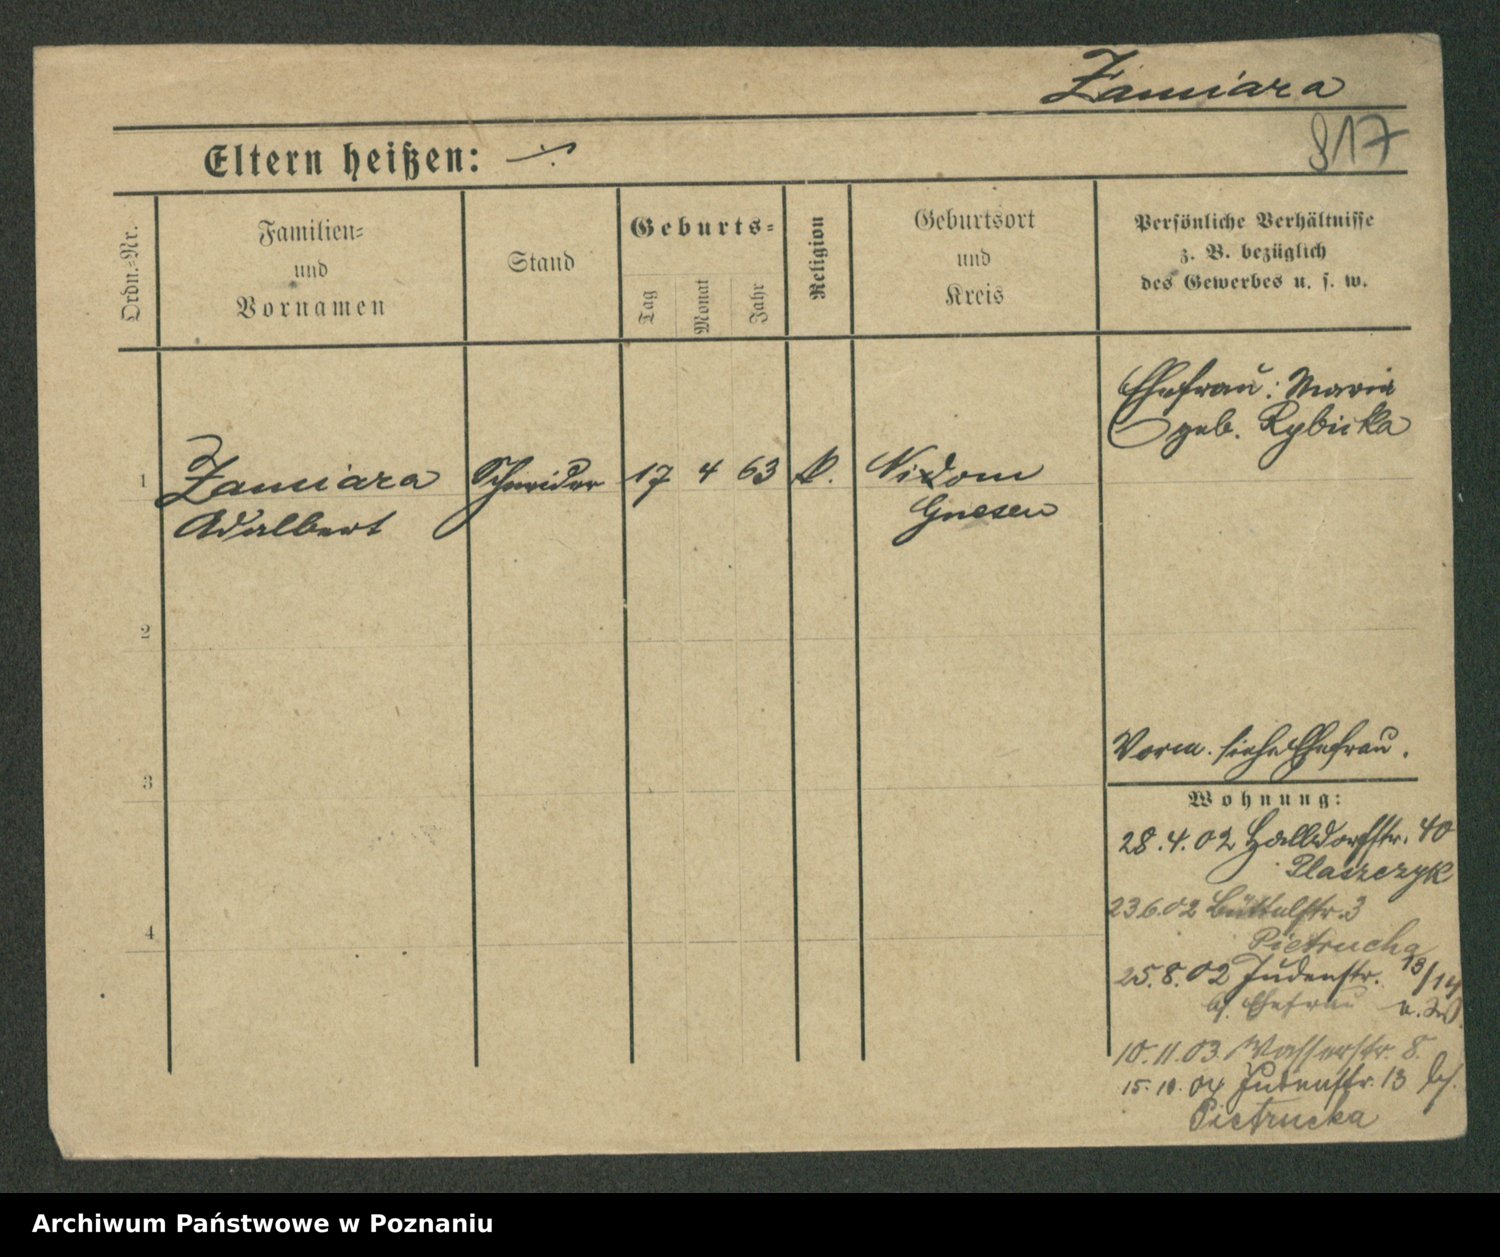 Zamiara
817
Eltern heißen: ·/·
Ordn.-Nr.
Familien-
und
Vornamen
Stand
Geburts-
Tag
Monat
Jahr
Religion
Geburtsort
und
Kreis
Persönliche Verhältnisse
z. B. bezüglich
des Gewerbes u. s. w.
Ehefrau: Maria
geb. Rybicka
1 Zamiara Schneider 17 4 63 k. Nidom
Adalbert Gnesen
2
3
4
Vorm. siehe Ehefrau.
Wohnung:
28.4.02 Halldorfstr. 40
Plaszczyk
23 6.02 Büttelstr. 3
Pietrucha
25.8.02 Judenstr. 13/14
b/. Ehefrau
10.11.03. Wasserstr. 8.
15.10.04 Judenstr. 13 b/.
Pietrucka
Archiwum Państwowe w Poznaniu